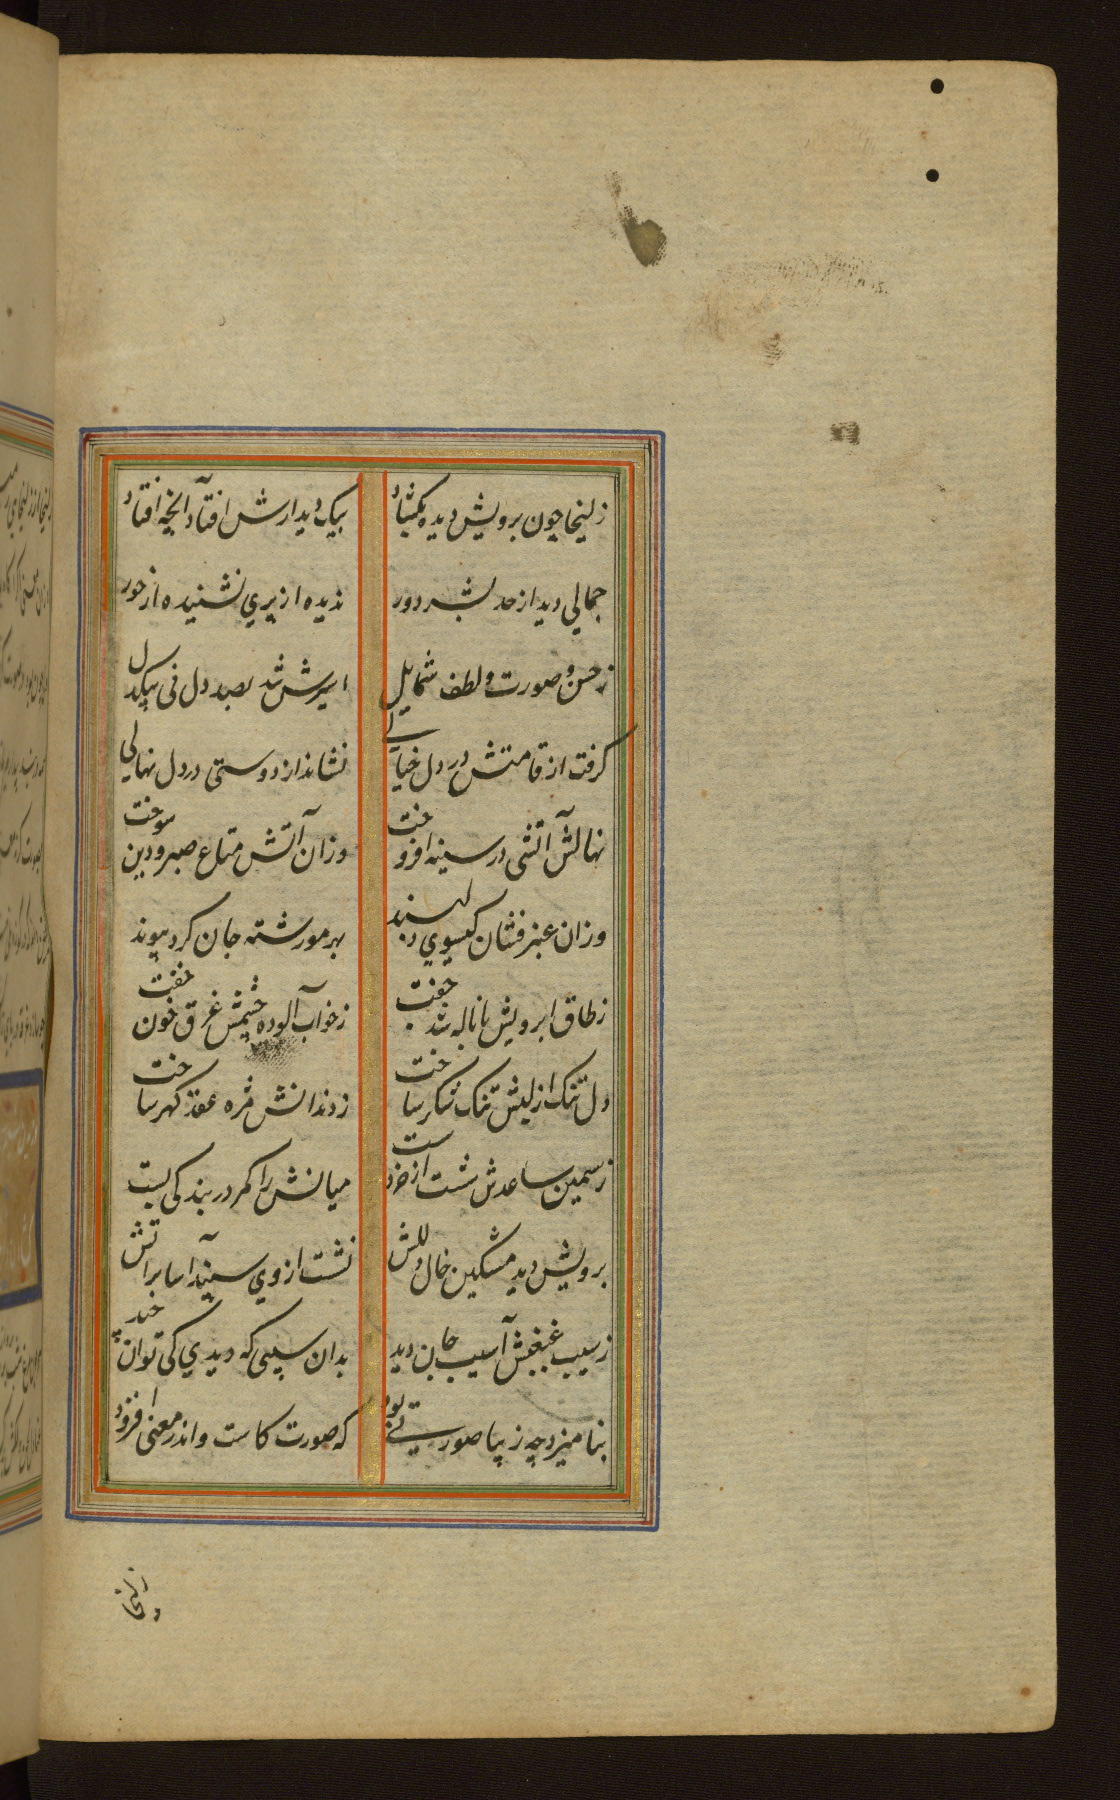 زلیخا چون برویش دیده بکشاد بیک دیدارش افتاد آنچه افتاد
جمالی دید از حد بشر دور ندیده از پری نشنیده از حور
ز حسن و صورت و لطف شمایل اسیرش شد بصد دل نی بیکدل
کرفت از قامتش در دل خیالی نشاند از دوستی در دل نهالی
نهالش آتشی در سینه افروخت وزان آتش متاع صبر و دین سوخت
وزان عنبر فشان کیسوی دلبند بهر مو رشته جان کرد پیوند
ز طاق ابرویش با ناله شد جفت ز خواب آلوده چشمش غرق خون خفت
دل تنک از لبش تنک شکر ساخت ز دندانش مژه عقد کهر ساخت
ز سیمین ساعدش شست از خرد دست میانش را کمر در بندکی بست
برویش دید مشکین خال دلکش نشست از وی سپند آسا بر آتش
ز سیب غبغبش آسیب جان دید بدان سیبی که دیدی کی توان چید
بنامیزد چه زیبا صورتی بود که صورت کاست واندر معنی افزود
زلیخا